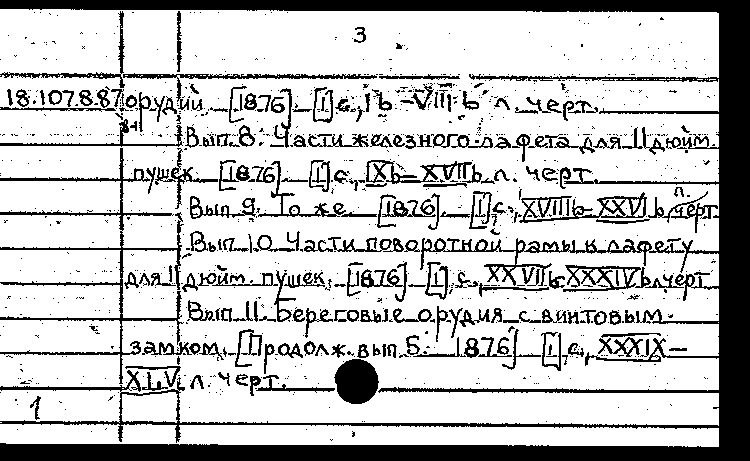 3
18.107.8.87 орудий. [1876]. [1] с., Ib – VIIIb л. черт.
8-11
Вып. 8. Части железного лафета для 11 дюйм.
пушек. [1876]. [1] с., IXb – XVIIb л. черт.
Вып. 9. То же. [1876]. [1] с., XVIIIb – XXVIb л. черт.
Вып. 10. Части поворотной рамы к лафету
для 11 дюйм. пушек. [1876]. [1] с., XXVIIb – XXXIVb л. черт.
Вып. 11. Береговые орудия с винтовым
замком. [Продолж. вып. 5. 1876]. [1] с., XXXIX –
XLV л. черт.
1